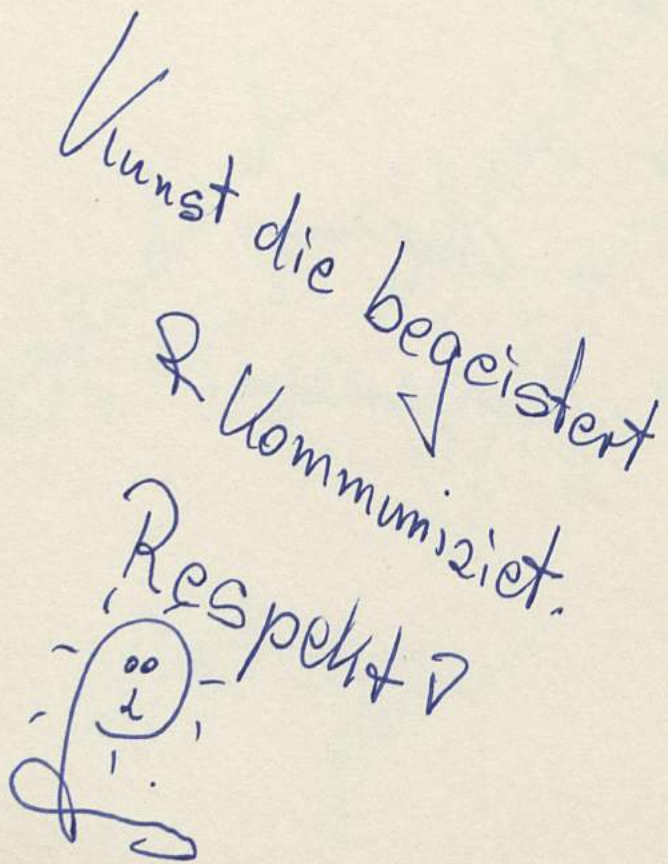 Kunst die begeistert
& Kommuniziet.
Respekt!